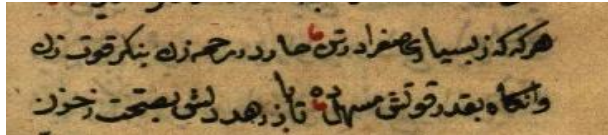 هرکه که ز بسیاری صفرا در تن ما دارد در جمه زن بنکر قوت زن
وانکاه بقدر قوتش مسهل ده تا باز رهد دلش بصحت ز حزن